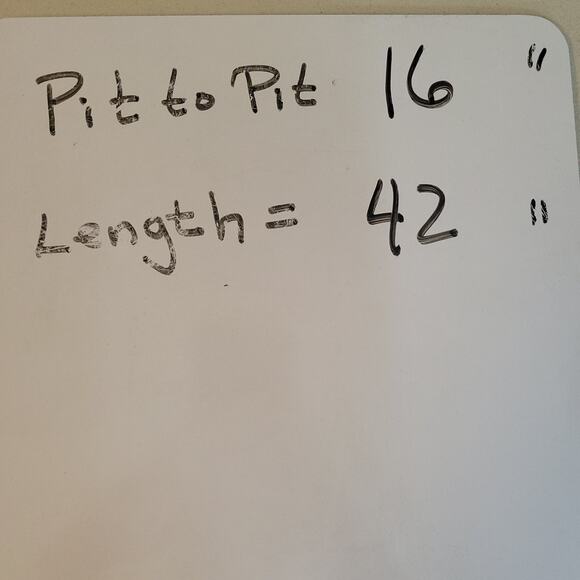 Pit to Pit 16 "
Length = 42 "